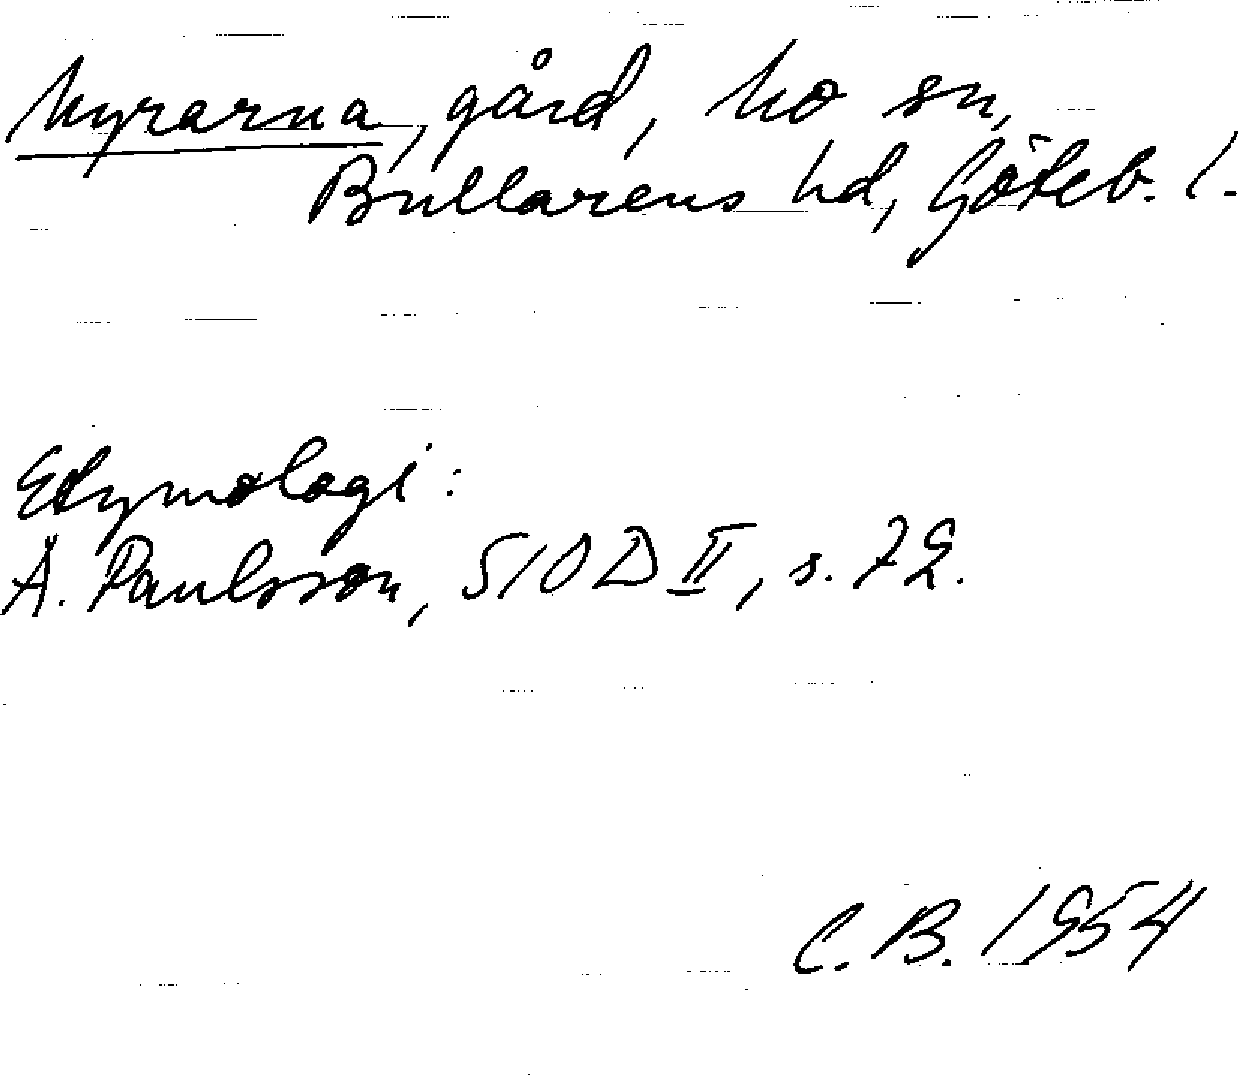 Myrarna, gård, Mo sn,
Bullarens hd, Göteb. l.
Etymologi:
Å. Paulsson, SIOD II, s. 72.
C.B. 1954